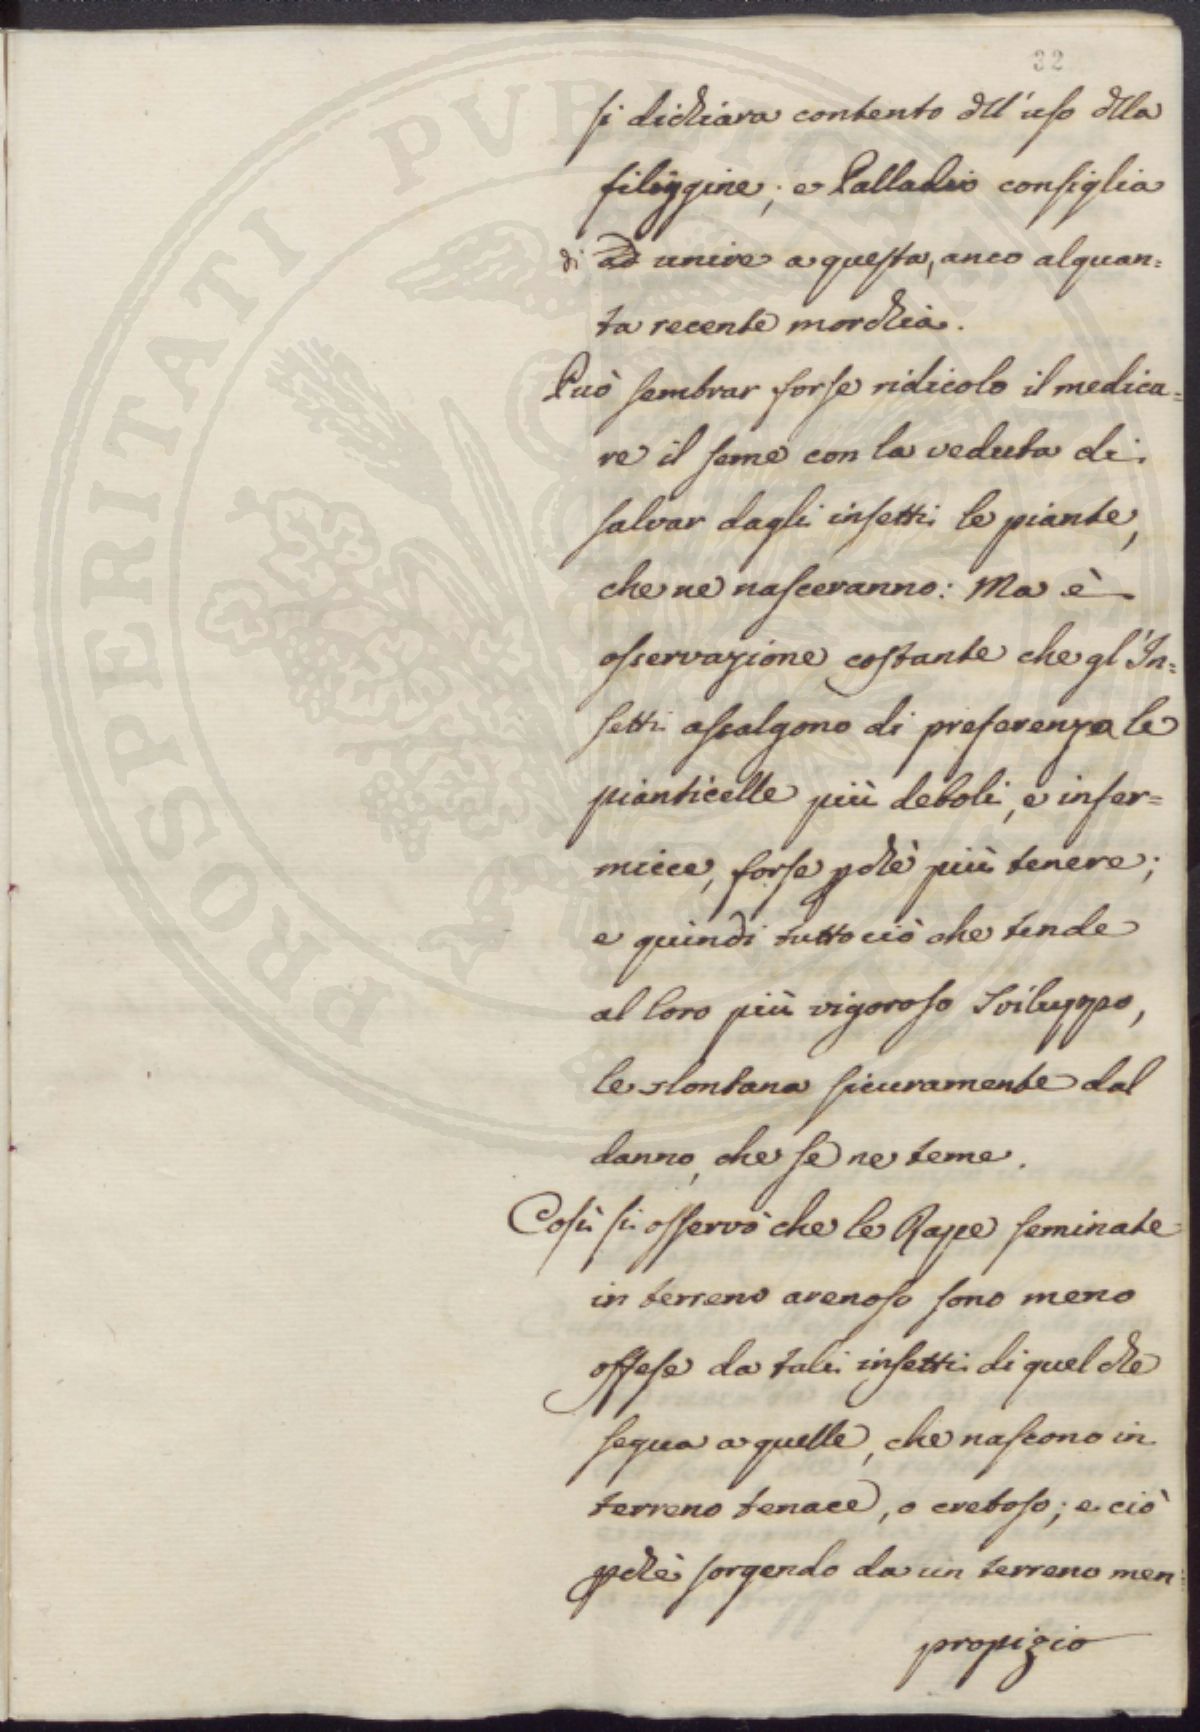 32
si dichiara contento dll'uso dlla
filiggine; e Palladio consiglia
di ad unire a questa, anco alquan=
ta recente morchia.
Può sembrar forse ridicolo il medica=
re il seme con la veduta di
salvar dagli insetti le piante,
che ne nasceranno: Ma è
osservazione costante che gl'In=
setti assalgono di preferenza le
pianticelle più deboli, e infer=
micce, forse pchè più tenere;
e quindi tuttociò che tende
al loro più vigoroso Sviluppo,
le slontana sicuramente dal
danno, che se ne teme.
Così si osservò che le Rape seminate
in terreno arenoso sono meno
offese da tali insetti di quel che
segua a quelle, che nascono in
terreno tenace, o cretoso; e ciò
pchè sorgendo da un terreno men
propizio
PROSPERITATI PVBLICAE